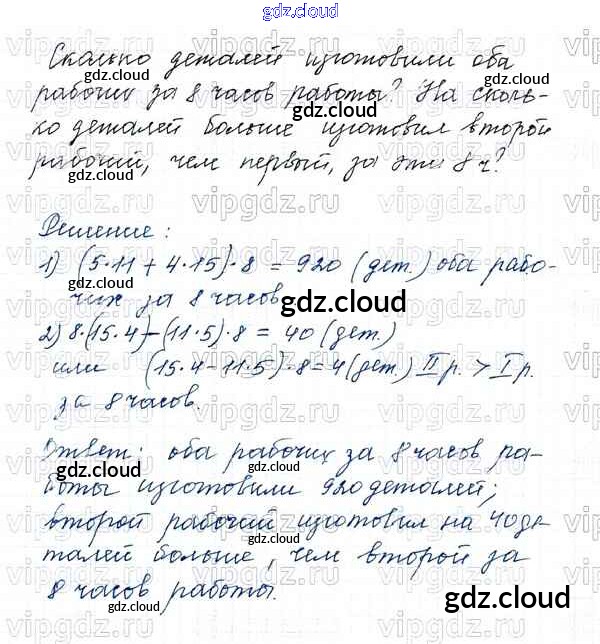 gdz.cloud
Сколько деталей изготовили оба
рабочих за 8 часов работы? На сколь-
ко деталей больше изготовил второй
рабочий, чем первый, за эти 8 ч?
Решение:
1) (5·11 + 4·15)·8 = 920 (дет.) оба рабо-
чих за 8 часов
2) 8·(15·4)-(11·5)·8 = 40 (дет.)
или (15·4-11·5)·8=4(дет.) II р. > I р.
за 8 часов.
Ответ: оба рабочих за 8 часов ра-
боты изготовили 920 деталей;
второй рабочий изготовил на 40 де-
талей больше, чем второй за
8 часов работы.
gdz.cloud
vipgdz.ru